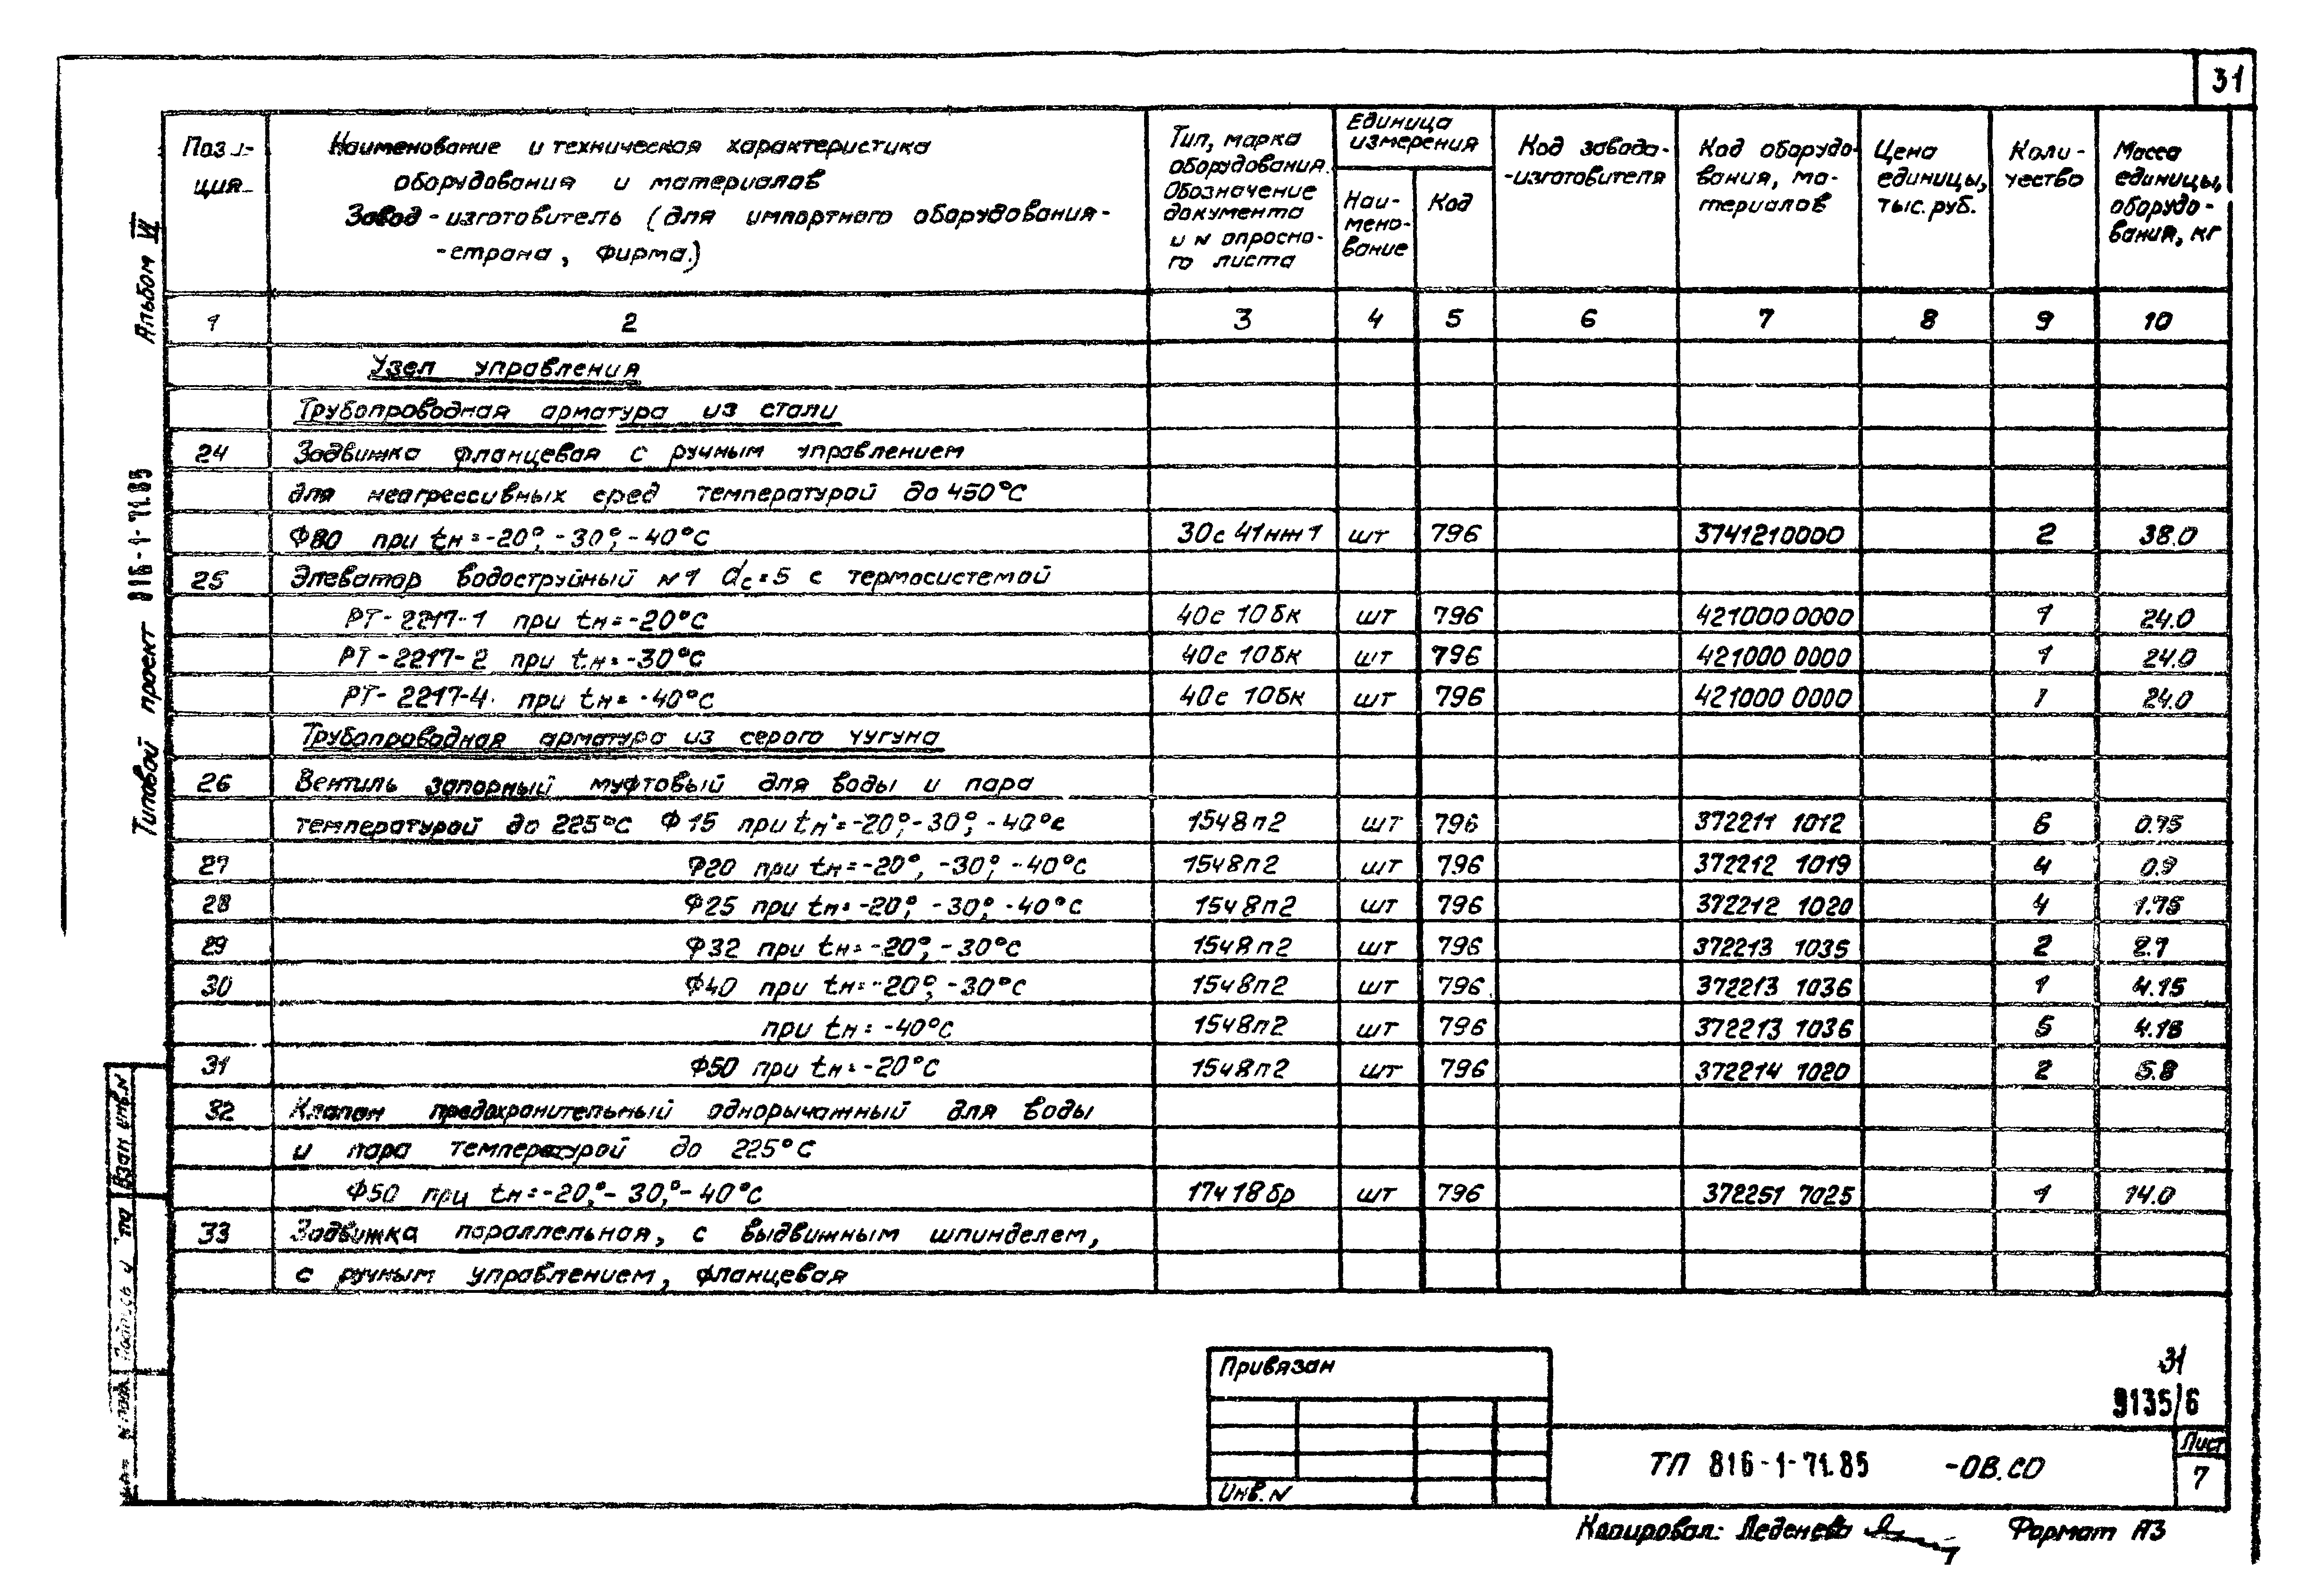 31
Позиция
Наименование и техническая характеристика
оборудования и материалов
Завод-изготовитель (для импортного оборудования-
-страна, фирма.)
Тип, марка
оборудования.
Обозначение
документа
и N опросно-
го листа
Единица
измерения
Наи-
мено-
вание
Код
Код завода-
-изготовителя
Код оборудо-
вания, ма-
териалов
Цена
единицы,
тыс. руб.
Коли-
чество
Масса
единицы,
оборудо-
вания, кг
1 2 3 4 5 6 7 8 9 10
Узел управления
Трубопроводная арматура из стали
24 Задвижка фланцевая с ручным управлением
для неагрессивных сред температурой до 450°С
Ф80 при tн=-20°, -30°, -40°С 30с 41нж1 шт 796 3741210000 2 38.0
25 Элеватор водоструйный N1 dс=5 с термосистемой
РТ-2217-1 при tн=-20°С 40с 10бк шт 796 421000 0000 1 24.0
РТ-2217-2 при tн=-30°С 40с 10бк шт 796 421000 0000 1 24.0
РТ-2217-4 при tн=-40°С 40с 10бк шт 796 421000 0000 1 24.0
Трубопроводная арматура из серого чугуна
26 Вентиль запорный муфтовый для воды и пара
температурой до 225°С Ф15 при tн=-20°,-30°,-40°с 15ч8п2 шт 796 372211 1012 6 0.75
27 Ф20 при tн=-20°, -30°, -40°С 15ч8п2 шт 796 372212 1019 4 0.9
28 Ф25 при tн=-20°, -30°, -40°С 15ч8п2 шт 796 372212 1020 4 1.75
29 Ф32 при tн=-20°, -30°С 15ч8п2 шт 796 372213 1035 2 2.7
30 Ф40 при tн=-20°, -30°С 15ч8п2 шт 796 372213 1036 1 4.15
при tн=-40°С 15ч8п2 шт 796 372213 1036 5 4.15
31 Ф50 при tн=-20°С 15ч8п2 шт 796 372214 1020 2 5.8
32 Клапан предохранительный однорычажный для воды
и пара температурой до 225°С
Ф50 при tн=-20,°-30,°-40°С 17ч18бр шт 796 372251 7025 1 14.0
33 Задвижка параллельная, с выдвижным шпинделем,
с ручным управлением, фланцевая
Альбом VI
Типовой проект 816-1-71.85
Взам инв.N
Подпись и
N подл
Привязан
Инв.N
31
9135/6
ТП 816-1-71.85 -ОВ.СО
Лист
7
Копировал: Леденева
Формат А3